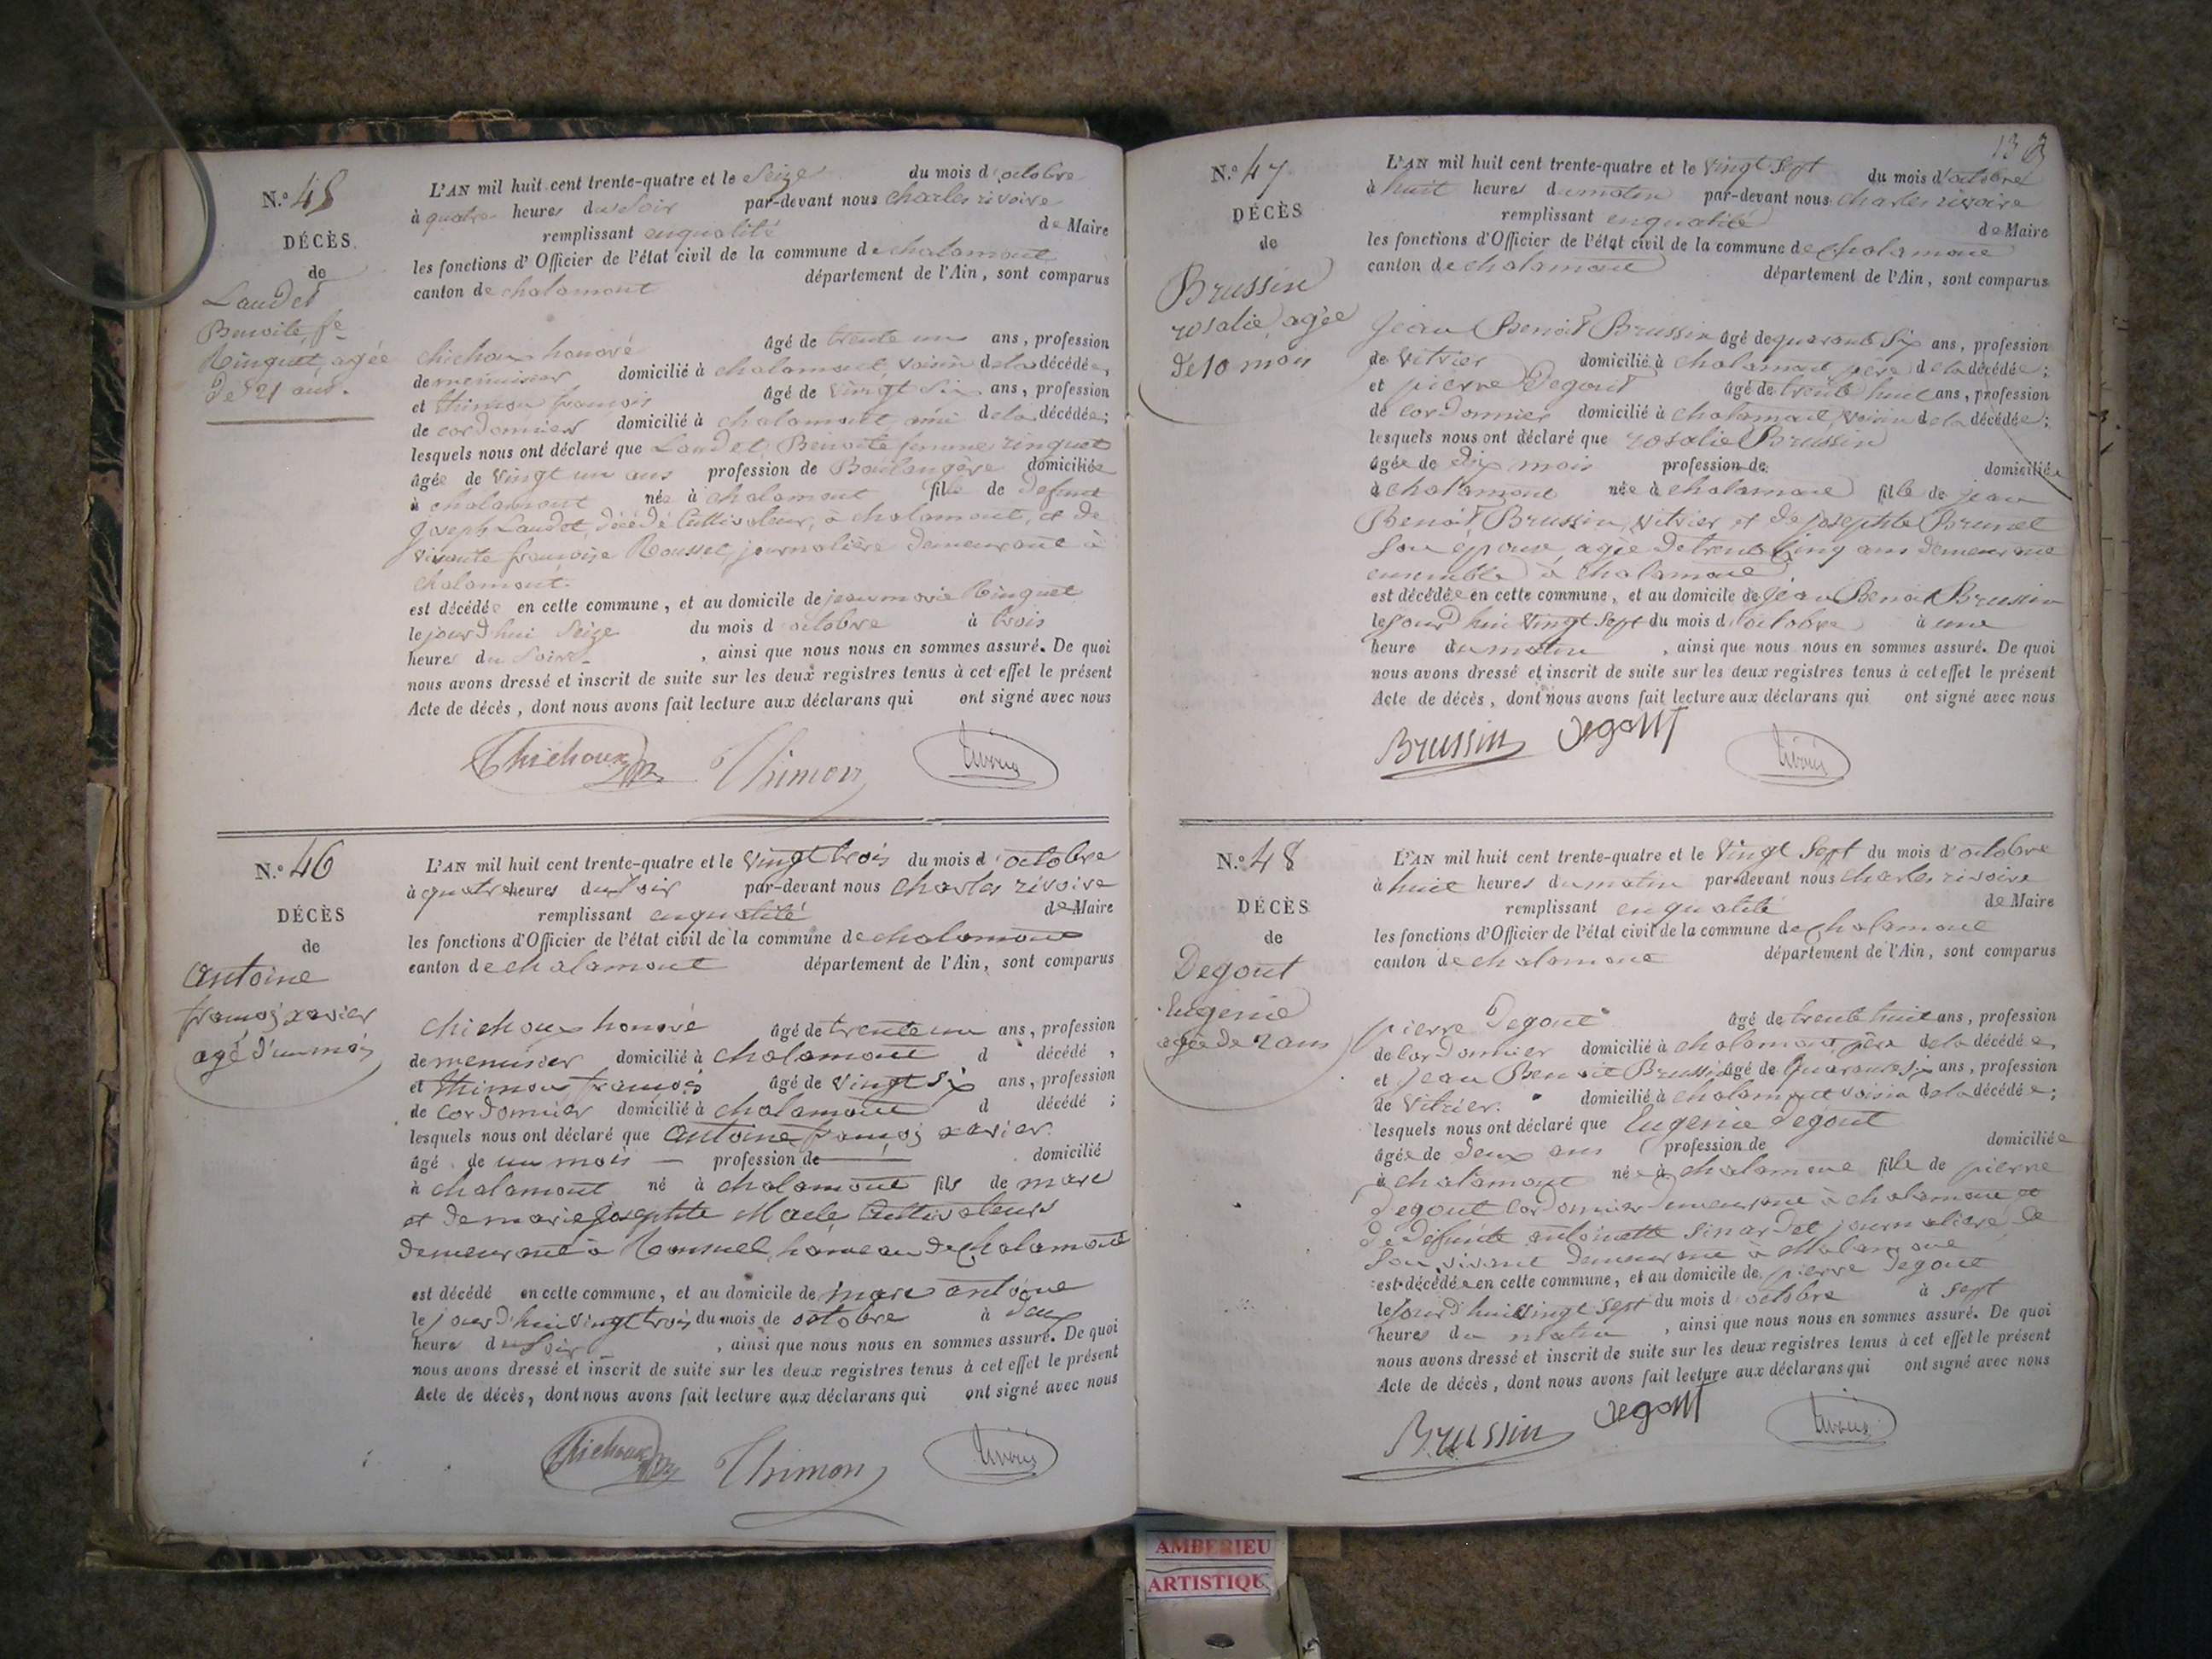 N.º 45
DÉCÈS
de
Laudet
Benoite, fe
Ringuet, agée
de 21 ans.
L'AN mil huit cent trente-quatre et le Seize du mois d'octobre
à quatre heures du Soir par-devant nous charles rivoire
remplissant enqualité de Maire
les fonctions d'Officier de l'état civil de la commune de chalamont
canton de chalamont département de l'Ain, sont comparus
chichoux honoré âgé de trente un ans, profession
de menuisier domicilié à chalamont, voisin de la décédée,
et thimon françois âgé de vingt six ans, profession
de cordonnier domicilié à chalamont, ami de la décédée;
lesquels nous ont déclaré que Laudet Benoite femme ringuet
âgée de vingt un ans profession de Boulangère domiciliée
à chalamont née à chalamont fille de defunt
Joseph Laudet, décédé Cultivateur, à chalamont, et de
vivante françoise Rousset journalière demeurant à
chalamont.
est décédée en cette commune, et au domicile de jean marie Ringuet
le jourd'hui Seize du mois d'octobre à trois
heures du Soir , ainsi que nous nous en sommes assuré. De quoi
nous avons dressé et inscrit de suite sur les deux registres tenus à cet effet le présent
Acte de décès, dont nous avons fait lecture aux déclarans qui ont signé avec nous
Chichoux Thimon rivoire
N.º 46
DÉCÈS
de
Antoine
françois xavier
agé d'un mois
L'AN mil huit cent trente-quatre et le vingt trois du mois d'octobre
à quatre heures du Soir par-devant nous charles rivoire
remplissant enqualité de Maire
les fonctions d'Officier de l'état civil de la commune de chalamont
canton de chalamont département de l'Ain, sont comparus
chichoux honoré âgé de trente un ans, profession
de menuisier domicilié à chalamont d décédé,
et thimon françois âgé de vingt six ans, profession
de cordonnier domicilié à chalamont d décédé;
lesquels nous ont déclaré que Antoine françois xavier
âgé de un mois profession de domicilié
à chalamont né à chalamont fils de marc
et de marie josephte Cultivateurs
demeurant à hameau de chalamont
est décédé en cette commune, et au domicile de marc antoine
le jourd'hui vingt trois du mois de octobre à deux
heure du Soir , ainsi que nous nous en sommes assuré. De quoi
nous avons dressé et inscrit de suite sur les deux registres tenus à cet effet le présent
Acte de décès, dont nous avons fait lecture aux déclarans qui ont signé avec nous
Chichoux Thimon rivoire
N.º 47
DÉCÈS
de
Brussin
rosalie agée
de 10 mois
L'AN mil huit cent trente-quatre et le vingt Sept du mois d'octobre
à huit heures du matin par-devant nous charles rivoire
remplissant enqualité de Maire
les fonctions d'Officier de l'état civil de la commune de chalamont
canton de chalamont département de l'Ain, sont comparus
Jean Benoit Brussin âgé de quarante Six ans, profession
de Vitrier domicilié à chalamont père de la décédée;
et pierre Degout âgé de trente huit ans, profession
de cordonnier domicilié à chalamont, voisin de la décédée;
lesquels nous ont déclaré que rosalie Brussin
âgée de dix mois profession de domiciliée
à chalamont née à chalamont fille de jean
Benoit Brussin, vitrier et de josephte Brunet
Son épouse agée de trente cinq ans demeurant
ensemble à chalamont
est décédée en cette commune, et au domicile de Jean Benoit Brussin
le jourd'hui vingt Sept du mois d'octobre à une
heure du matin , ainsi que nous nous en sommes assuré. De quoi
nous avons dressé et inscrit de suite sur les deux registres tenus à cet effet le présent
Acte de décès, dont nous avons fait lecture aux déclarans qui ont signé avec nous
Brussin degout rivoire
N.º 48
DÉCÈS
de
Degout
Eugenie
agée de 2 ans
L'AN mil huit cent trente-quatre et le vingt Sept du mois d'octobre
à huit heures du matin par-devant nous charles rivoire
remplissant enqualité de Maire
les fonctions d'Officier de l'état civil de la commune de chalamont
canton de chalamont département de l'Ain, sont comparus
pierre Degout âgé de trente huit ans, profession
de cordonnier domicilié à chalamont, père de la décédée
et Jean Benoit Brussin âgé de quarante six ans, profession
de Vitrier. domicilié à chalamont voisin de la décédée;
lesquels nous ont déclaré que Eugenie degout
âgée de deux ans profession de domiciliée
à chalamont née à chalamont fille de pierre
degout cordonnier demeurant à chalamont et
de defunte antoinette Sinardet journaliere de
Son vivant demeurant à chalamont
est décédée en cette commune, et au domicile de pierre degout
le jourd'hui vingt Sept du mois d'octobre à sept
heures du matin , ainsi que nous nous en sommes assuré. De quoi
nous avons dressé et inscrit de suite sur les deux registres tenus à cet effet le présent
Acte de décès, dont nous avons fait lecture aux déclarans qui ont signé avec nous
Brussin degout rivoire
AMBERIEU
ARTISTIQU